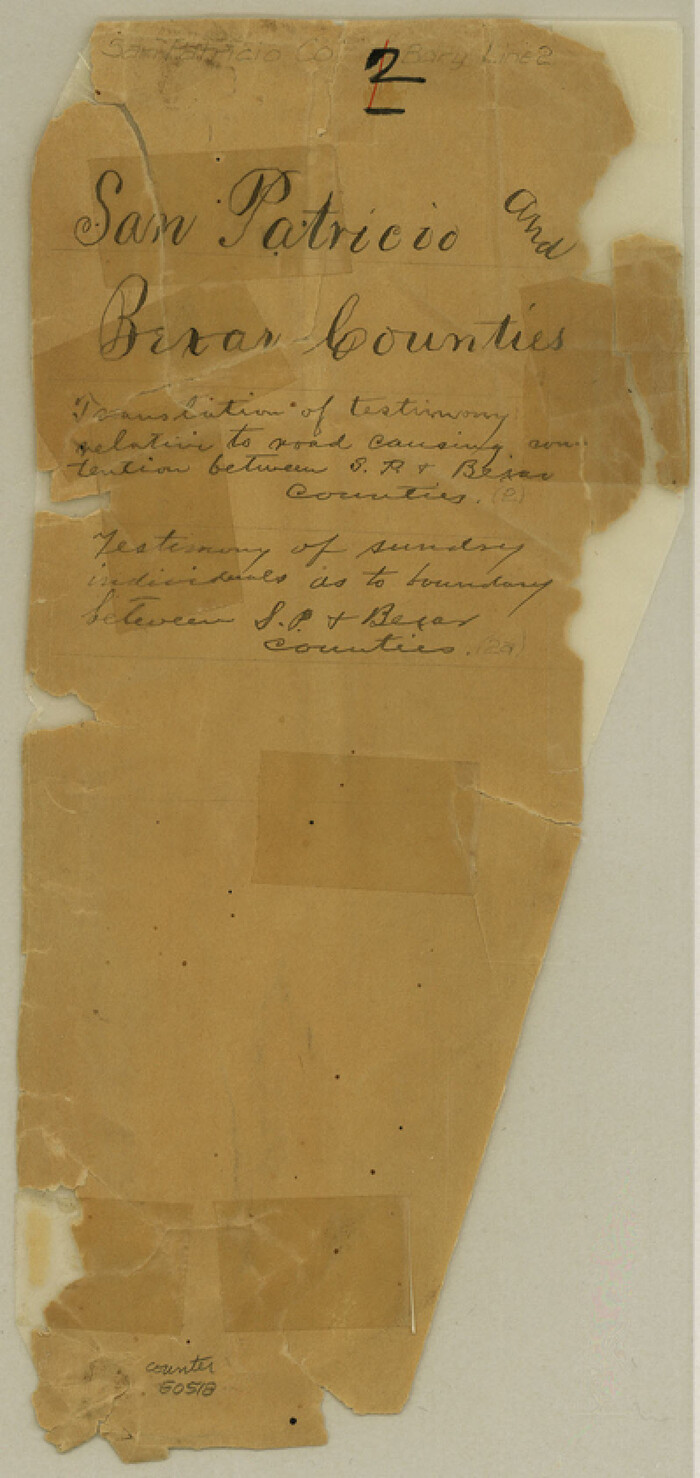 San Patricio Co Bdry Line 2
2
San Patricio and
Bexar Counties
Translation of testimony
relative to road causing con-
tention between S. P. & Bexar
Counties. (2)
Testimony of sundry
individuals as to boundary
between S. P. & Bexar
Counties. (2a)
counter
60518